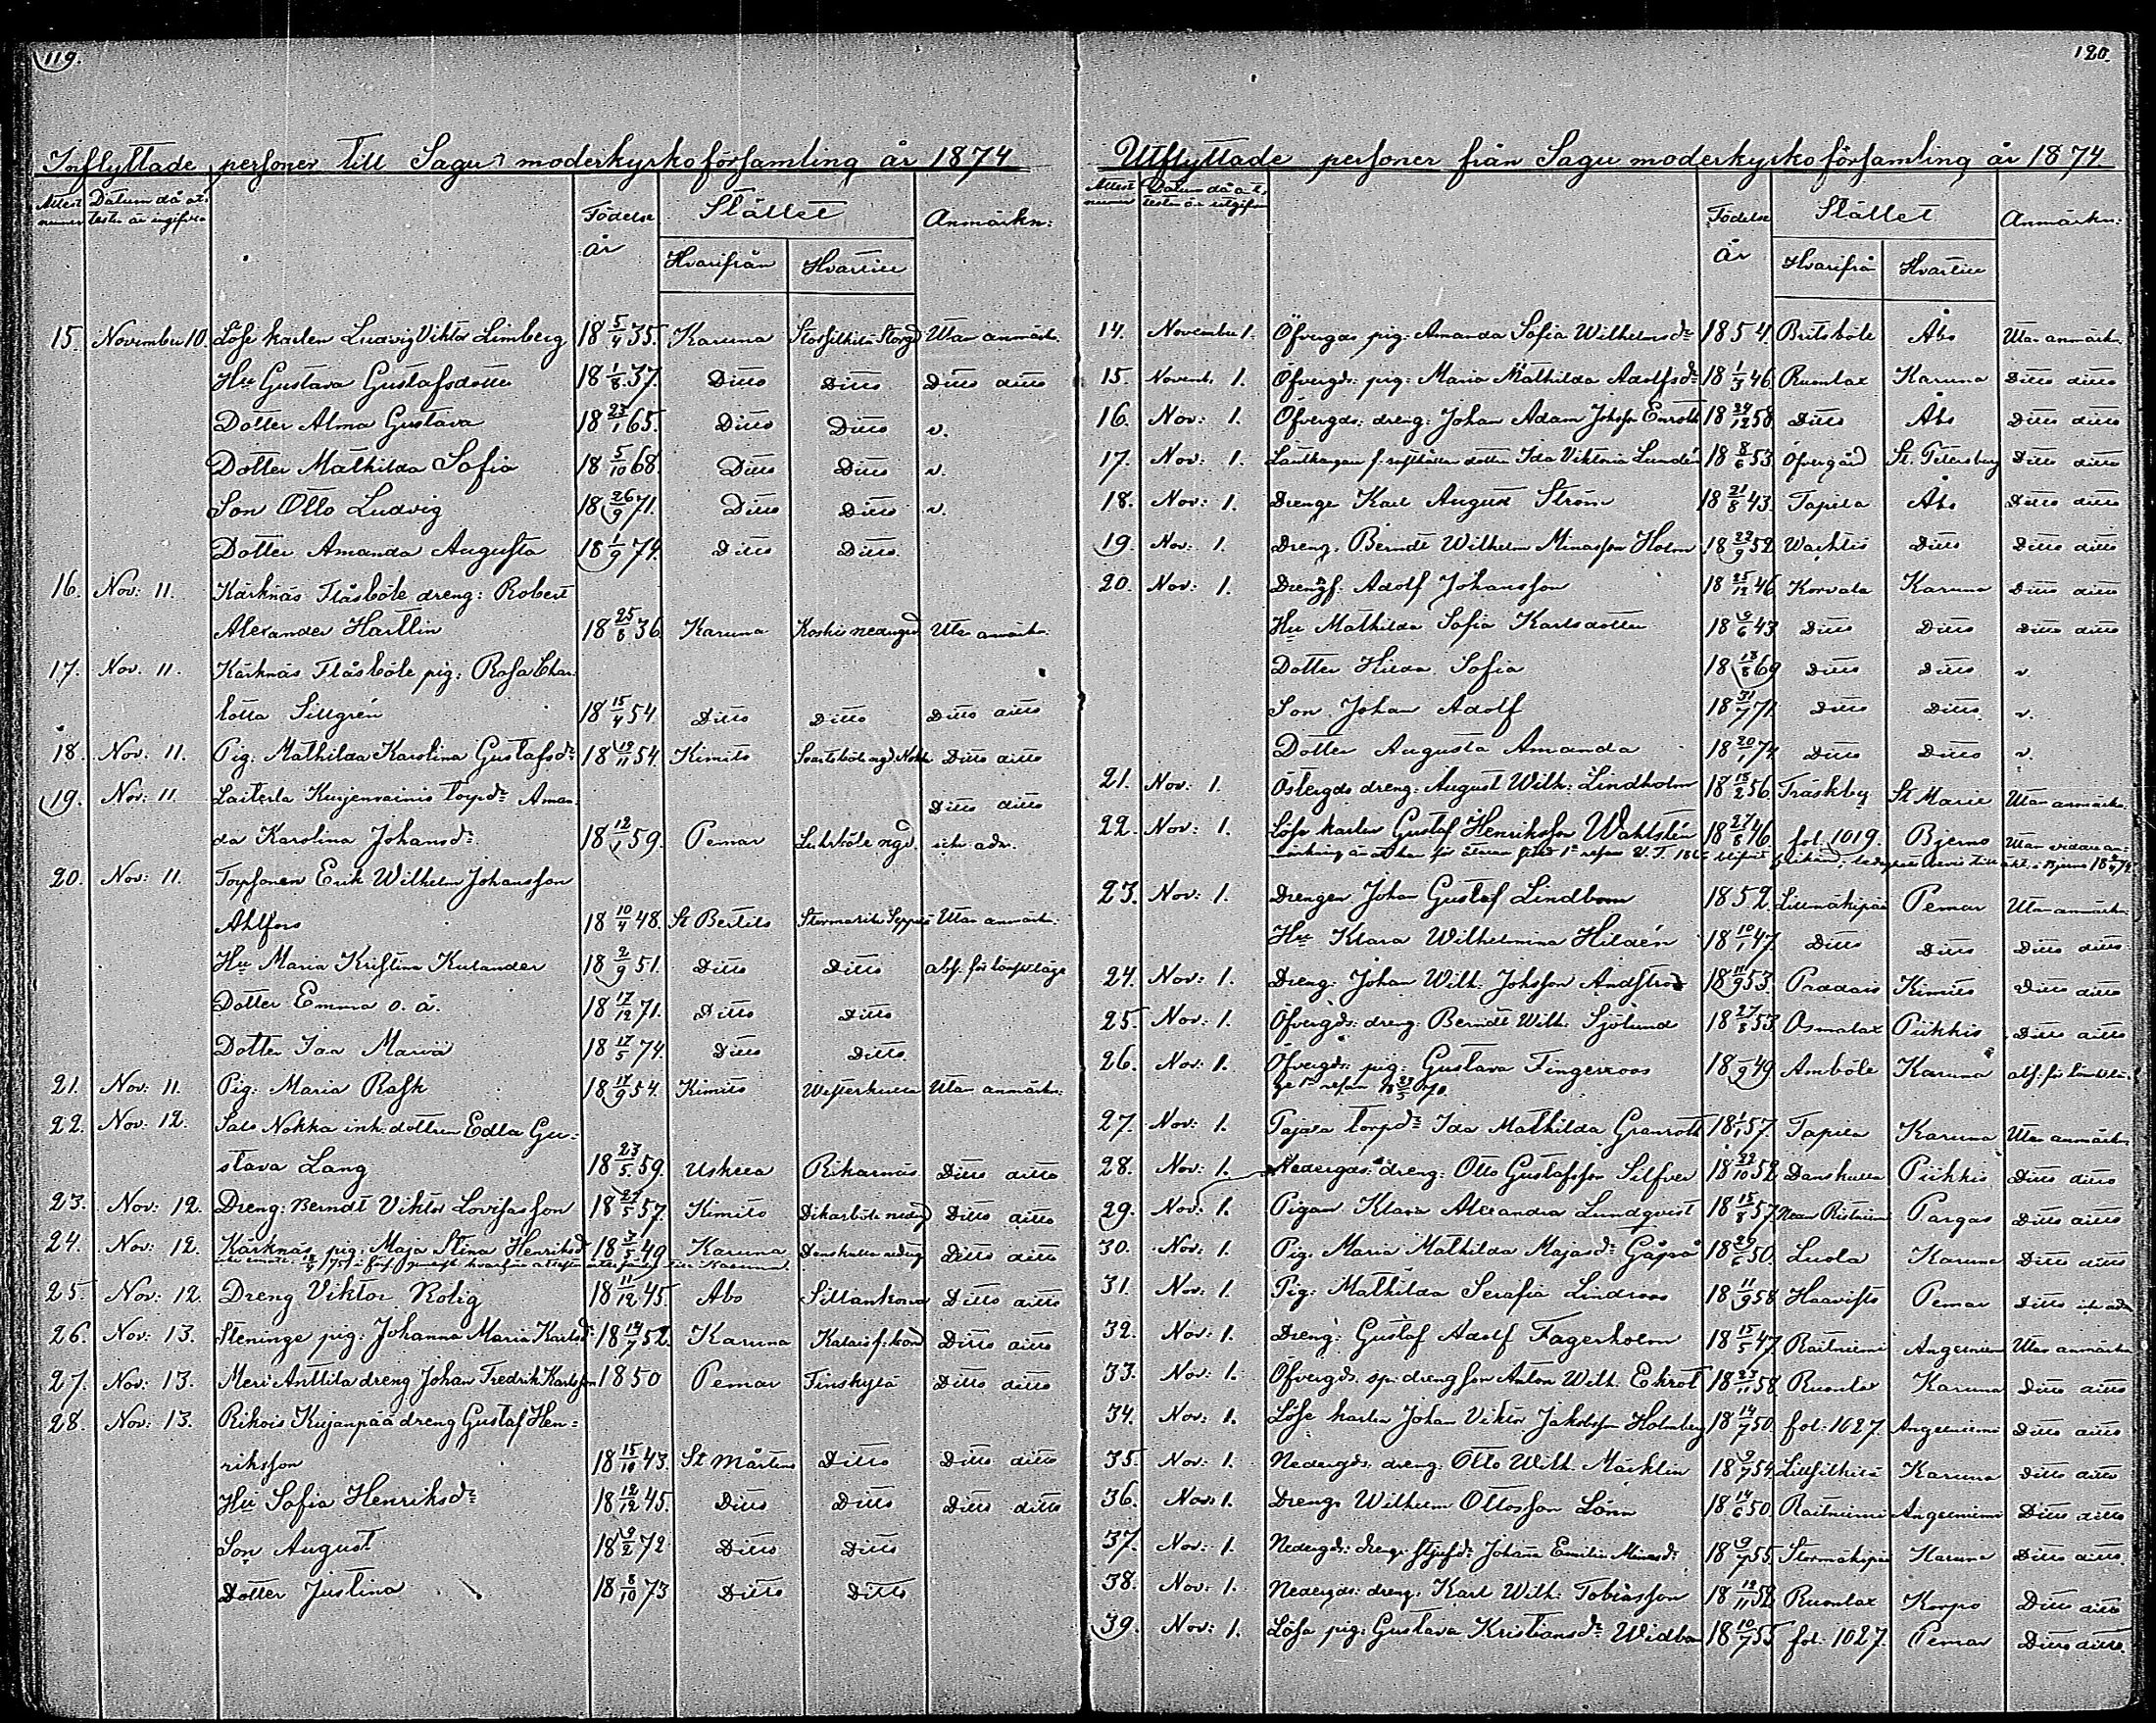 119.
Inflyttade personer till Sagu moderkyrkoförsamling år 1874
Attest Datum då at-
numer testen är utgifven
Födelse år
Stället
Hvarifrån Hvartill
Anmärkn:
15. November 10. Löse karlen Ludvig Viktor Limberg 18 5/4 35. Karuna Utan anmärkn.
Hu Gustava Gustafsdotter 18 1/8 37. Ditto Ditto Ditto ditto
Dotter Alma Gustava 18 23/1 65. Ditto Ditto v.
Dotter Mathilda Sofia 18 5/10 68. Ditto Ditto v.
Son Otto Ludvig 18 26/9 71. Ditto Ditto v.
Dotter Amanda Augusta 18 1/9 74. Ditto Ditto
16. Nov: 11. Kärknäs Flåsböle dreng: Robert
Alexander Hartlin 18 25/8 36. Karuna Koskis nedergd Utan anmärkn.
17. Nov. 11. Kärknäs Flåsböle pig: Rosa Char-
lotta Sillgrén 18 15/4 54 Ditto Ditto Ditto ditto
18. Nov. 11. Pig: Mathilda Karolina Gustafsdr 18 19/11 54. Kimito Ditto ditto
19. Nov: 11. Laiterla Kurjenrainis torpdr Aman- Ditto ditto
da Karolina Johansdr 18 12/1 59. Pemar
20. Nov: 11. Torpsonen Erik Wilhelm Johansson
Ahlfors 18 10/4 48. St Bertils Utan anmärkn.
Hu Maria Kristina Kulander 18 2/9 51. Ditto Ditto
Dotter Emma o. ä. 18 17/12 71. Ditto Ditto
Dotter Ida Maria 18 17/5 74. Ditto Ditto
21. Nov: 11. Pig: Maria Rask 18 14/9 54. Kimito Westerkulla Utan anmärkn:
22. Nov: 12. Salo Nokka inh. dottren Edla Gu-
stava Lang 18 23/5 59. Uskela Rikarnäs Ditto ditto
23. Nov: 12. Dreng: Berndt Viktor Lovisasson 18 27/5 57. Kimito Ditto ditto
24. Nov: 12. Kärknäs pig: Maja Stina Henriksdr 18 3/5 49 Karuna Danskulla nedrg Ditto ditto
25. Nov: 12. Dreng Viktor Rolig 18 11/12 45. Åbo Ditto ditto
26. Nov: 13. Steninge pig: Johanna Maria Karlsdr 18 14/7 52. Karuna Ditto ditto
27. Nov: 13. Meri Anttila dreng Johan Fredrik Karlsson 1850 Pemar Finskylä Ditto ditto
28. Nov: 13. Rikois Kujanpää dreng Gustaf Hen-
riksson 18 15/10 43. St Mårtens Ditto Ditto ditto
Hu Sofia Henriksdr 18 12/12 45. Ditto Ditto Ditto ditto
Son August 18 9/2 72 Ditto Ditto
Dotter Justina 18 8/10 73 Ditto Ditto
120.
Utflyttade personer från Sagu moderkyrkoförsamling år 1874
Attest Datum då at-
numer testen är utgifven
Födelse År
Stället
Hvarifrån Hvartill
Anmärkn:
14. November 1. Öfvergds pig: Amanda Sofia Wilhelmsdr 1854. Britsböle Åbo Utan anmärkn.
15. Novemb. 1. Öfvergds: pig: Maria Mathilda Adolfsdr 18 1/3 46 Ruonlax Karuna Ditto ditto
16. Nov: 1. Öfvergds: dreng: Johan Adam Johsson Enroth 18 24/12 58 Ditto Åbo Ditto ditto
17. Nov: 1. Lanthangan f. rusthållar dotter Ida Viktoria Lundén 18 8/6 53. Öfvergård St. Petersburg Ditto ditto
18. Nov: 1. Drengen Karl August Ström 18 21/8 43. Tapila Åbo Ditto ditto
19. Nov: 1. Dreng. Berndt Wilhelm Minasson Holm 18 22/9 52 Wachtis Ditto Ditto ditto
20. Nov: 1. Drengf. Adolf Johansson 18 25/12 46 Korvala Karuna Ditto ditto
Hu Mathilda Sofia Karlsdotter 18 9/6 43 Ditto Ditto Ditto ditto
Dotter Hilda Sofia 18 18/8 69 Ditto Ditto v.
Son Johan Adolf 18 31/7 71 Ditto Ditto v.
Dotter Augusta Amanda 18 20/1 74 Ditto Ditto v.
21. Nov: 1. Östergds dreng: August Wilh: Lindholm 18 15/2 56 Träskby St Marie Utan anmärkn.
22. Nov: 1. Löse karlen Gustaf Henriksson Wahlstén 18 27/8 46. fol. 1019. Bjerno Utan vidare an-
23. Nov: 1. Drengen Johan Gustaf Lindbom 1852. Lillmäkipää Pemar Utan anmärkn.
Hu Klara Wilhelmina Hildén 18 10/1 47 Ditto Ditto Ditto ditto
24. Nov: 1. Dreng: Johan Wilh: Johsson Andströ 18 11/9 53. Pradais Kimito Ditto ditto
25. Nov: 1. Öfvergds: dreng: Berndt Wilh: Sjölund 18 27/8 53 Osmalax Piikkis Ditto ditto
26. Nov: 1. Öfvergds: pig: Gustava Fingerroos 18 /9 49 Amböle Karuna
27. Nov: 1. Pajala torpdr Ida Mathilda Granroth 18 1/1 57. Tapila Karuna Utan anmärkn
28. Nov: 1. Nedergds: dreng: Otto Gustafsson Silfver 18 22/10 52 Danskulla Piikkis Ditto ditto
29. Nov: 1. Pigan Klara Alexandra Lundqvist 18 15/8 57. Pargas Ditto ditto
30. Nov: 1. Pig. Maria Mathilda Majasdr Gåpså 18 29/6 50. Luola Karuna Ditto ditto
31. Nov: 1. Pig: Mathilda Serafia Lindroos 18 11/9 58 Haavisto Pemar Ditto
32. Nov: 1. Dreng: Gustaf Adolf Fagerholm 18 15/5 47. Raitniemi Angelniemi Utan anmärkn
33. Nov: 1. Öfvergds. sp: dreng son Anton Wilh. Ekrot 18 23/11 58 Ruonlax Karuna Ditto ditto
34. Nov: 1. Löse karlen Johan Viktor Jakobsson Holmberg 18 14/7 50 fol: 1027. Angelniemi Ditto ditto
35. Nov: 1. Nedergds. dreng: Otto Wilh. Märklin 18 9/7 54 Karuna Ditto ditto
36. Nov: 1. Dreng. Wilhelm Ottosson Lönn 18 14/6 50. Raitniemi Angelniemi Ditto ditto
37. Nov: 1. Nedergds: drengs stjufdr Johana Emilia Minasdr 18 9/7 55. Stormäkipää Karuna Ditto ditto
38. Nov: 1. Nedergds: dreng. Karl Wilh. Tobiasson 18 12/11 52 Ruonlax Korpo Ditto ditto
39. Nov: 1. Lösa pig: Gustava Kristiansdr Widbom 18 10/7 55 fol: 1027. Pemar Ditto ditto.